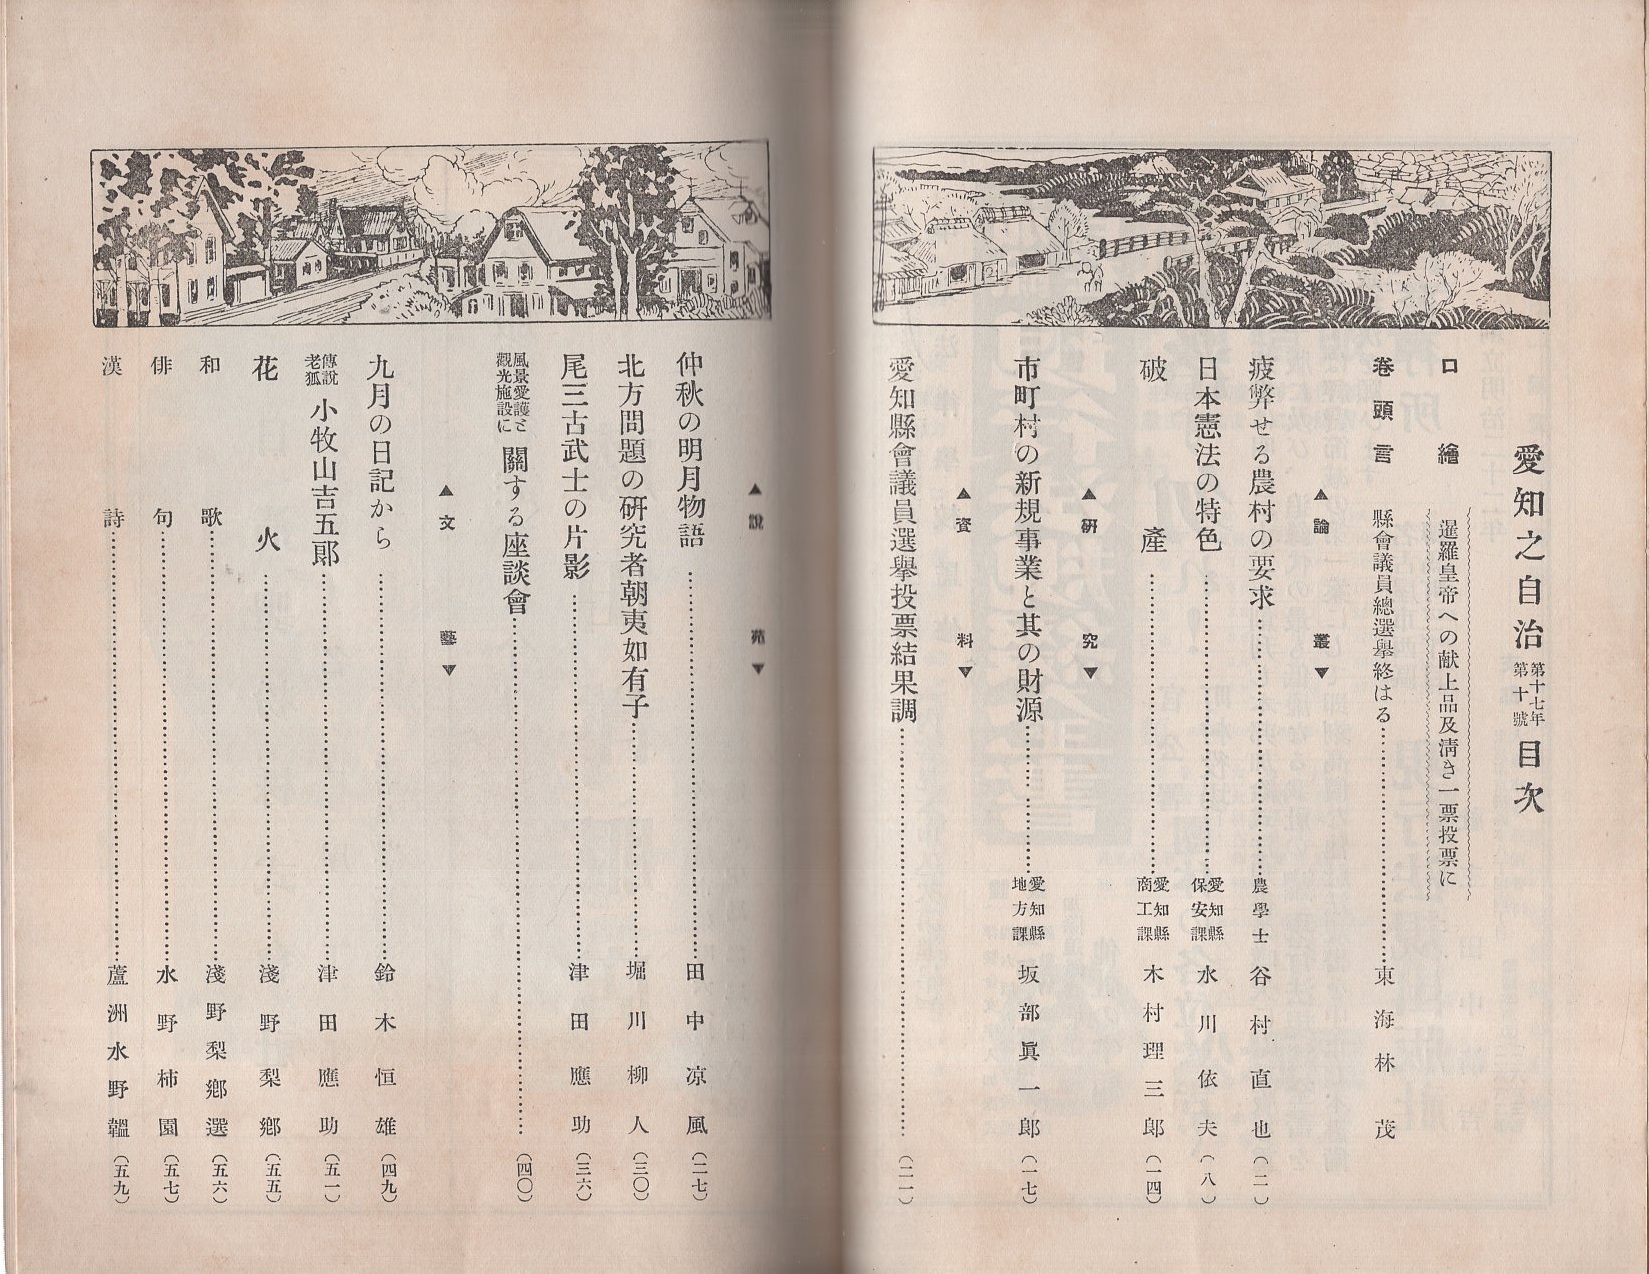 愛知之自治 第十七年 第十號 目次
口繪 暹羅皇帝への献上品及淸き一票投票に
卷頭言 縣會議員總選擧終はる 東海林茂
▲論叢▼
疲弊せる農村の要求 農學士 谷村直也（二）
日本憲法の特色 愛知縣保安課 水川依夫（八）
破產 愛知縣商工課 木村理三郞（一四）
▲硏究▼
市町村の新規事業と其の財源 愛知縣地方課 坂部眞一郞（一七）
▲資料▼
愛知縣會議員選擧投票結果調（二一）
▲說苑▼
仲秋の明月物語 田中凉風（二七）
北方問題の硏究者朝夷如有子 堀川柳人（三〇）
尾三古武士の片影 津田應助（三六）
風景愛護と觀光施設に關する座談會（四〇）
▲文藝▼
九月の日記から 鈴木恒雄（四九）
傳說老狐 小牧山吉五郞 津田應助（五一）
花火 淺野梨鄕（五五）
和歌 淺野梨鄕選（五六）
俳句 水野柿園（五七）
漢詩 蘆洲水野韞（五九）